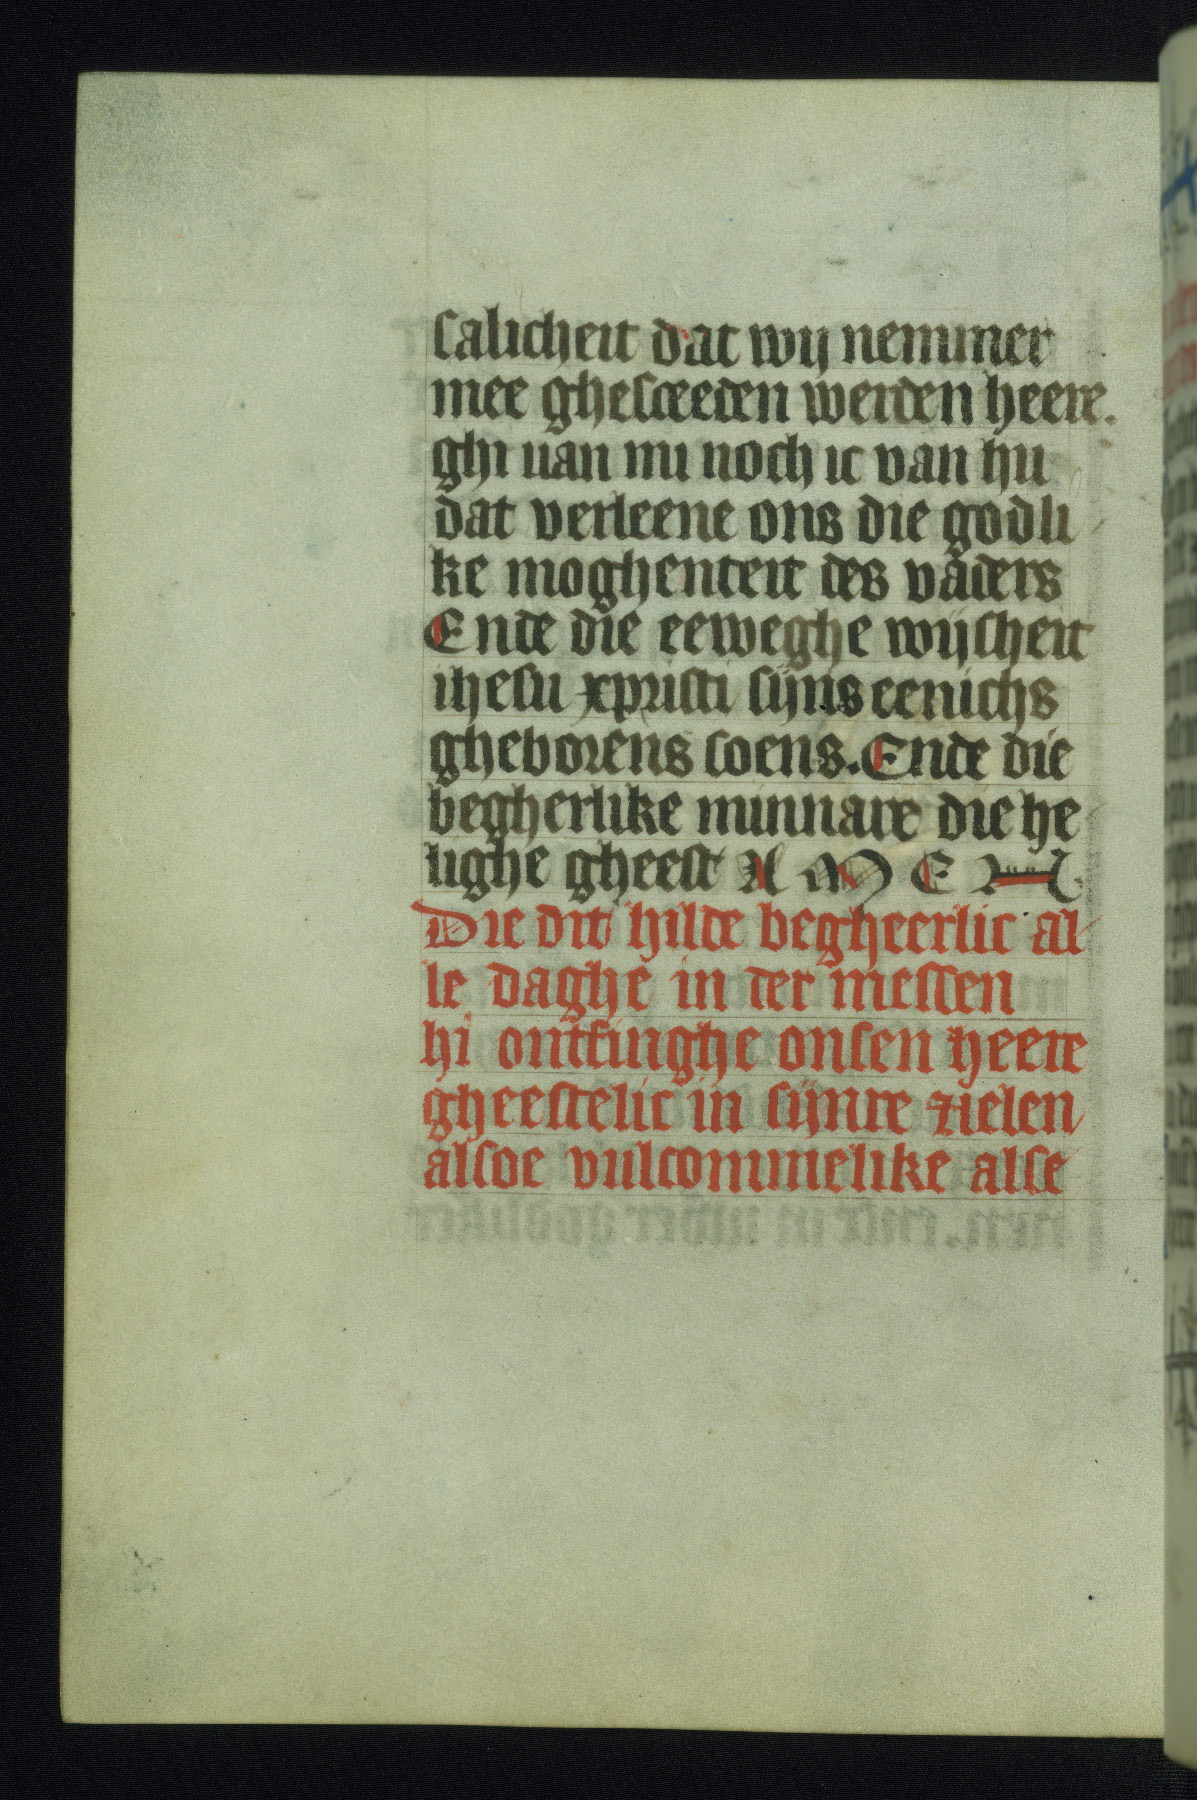 salicheit dat wij nemmer
mee ghesceeden werden heere.
ghi uan mi noch ic van hu
dat verleene ons die godli
ke moghenteit des vaders
Ende die eeweghe wijsheit
ihesu xpristi sijns eenichs
gheborens soens. Ende die
begherlike minnare die he
lighe gheest A M E N
Die dit hilde begheerlic al
le daghe in der messen
hi ontfinghe onsen heere
gheestelic in sijnre zielen
alsoe vulcommelike alse